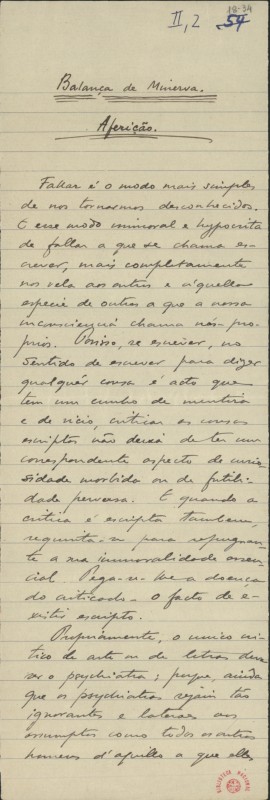 II, 2
18-34
54
Balança de Minerva.
Aferição.
Fallar é o modo mais simples
de nos tornarmos desconhecidos.
E esse modo immoral e hypocrita
de fallar a que se chama es-
crever, mais completamente
nos vela aos outros e áquella
especie de outros a que a nossa
inconsciencia chama nós-pro-
prios. Porisso, se escrever, no
sentido de escrever para dizer
qualquér cousa é acto que
tem um cunho de mentira
e de vicio, criticar as cousas
escriptas não deixa de ter um
correspondente aspecto de curio-
sidade morbida ou de futili-
dade perversa. E quando a
critica é escripta tambem,
requinta-se para repugnan-
te a sua immoralidade essen-
cial. Pega-se-lhe a doença
do criticado – o facto de é-
xistir escripto.
Propriamente, o unico cri-
tico de arte ou de letras deve
ser o psychiatra; porque, ainda
que os psychiatras sejam tão
ignorantes e lateraes aos
assumptos como todos os outros
homens d'aquillo a que elles
BIBLIOTECA NACIONAL